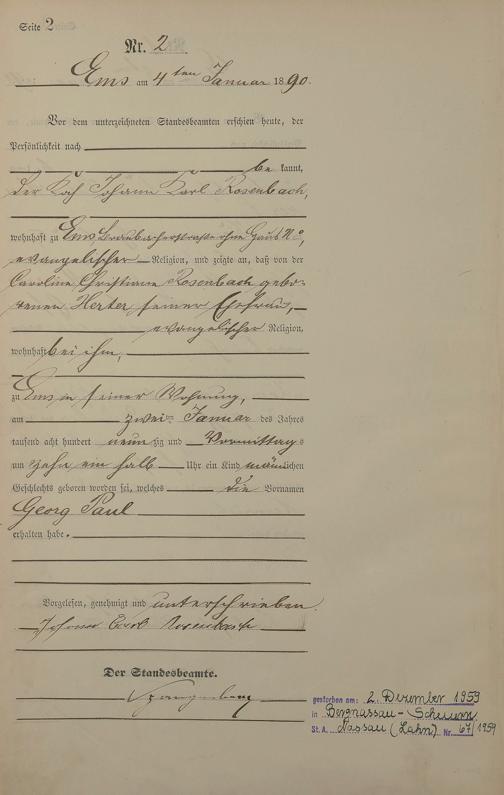 Seite 2
Nr. 2
Ems am 4ten Januar 1890.
Vor dem unterzeichneten Standesbeamten erschien heute, der
Persönlichkeit nach
be kannt,
der Koch Johann Karl Rosenbach,
wohnhaft zu Ems, Braubacherstraße ohne Haus No,
evangelischer Religion, und zeigte an, daß von der
Caroline Christiane Rosenbach gebo-
renen Herter seiner Ehefrau,
evangelischer Religion,
wohnhaft bei ihm,
zu Ems in seiner Wohnung,
am zwei Januar des Jahres
tausend acht hundert neunzig und Vormittags
um zehn ein halb Uhr ein Kind männlichen
Geschlechts geboren worden sei, welches die Vornamen
Georg Paul
erhalten habe.
Vorgelesen, genehmigt und unterschrieben.
Johann Carl Rosenbach
Der Standesbeamte.
gestorben am: 2. Dezember 1959
in Bergnassau-Scheuern
St. A. Nassau (Lahn) Nr. 67/1959